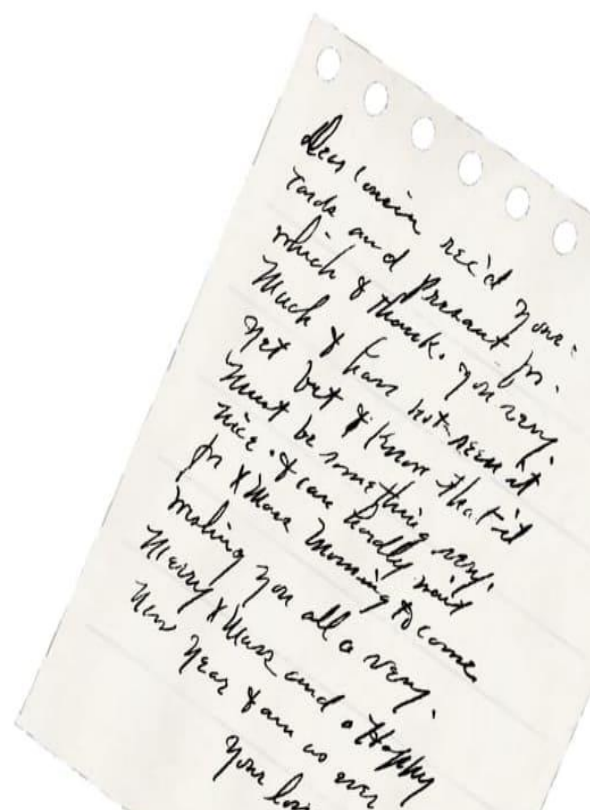 Dear Cousin rec'd your
Cards and Presant for
which I thank. you very.
Much I have not seen it
yet but I Know that it
Must be something very.
nice. I can hardly wait
for XMass Morning to come
you all a very.
Merry XMass and a Happy
New Year I am as ever
Your